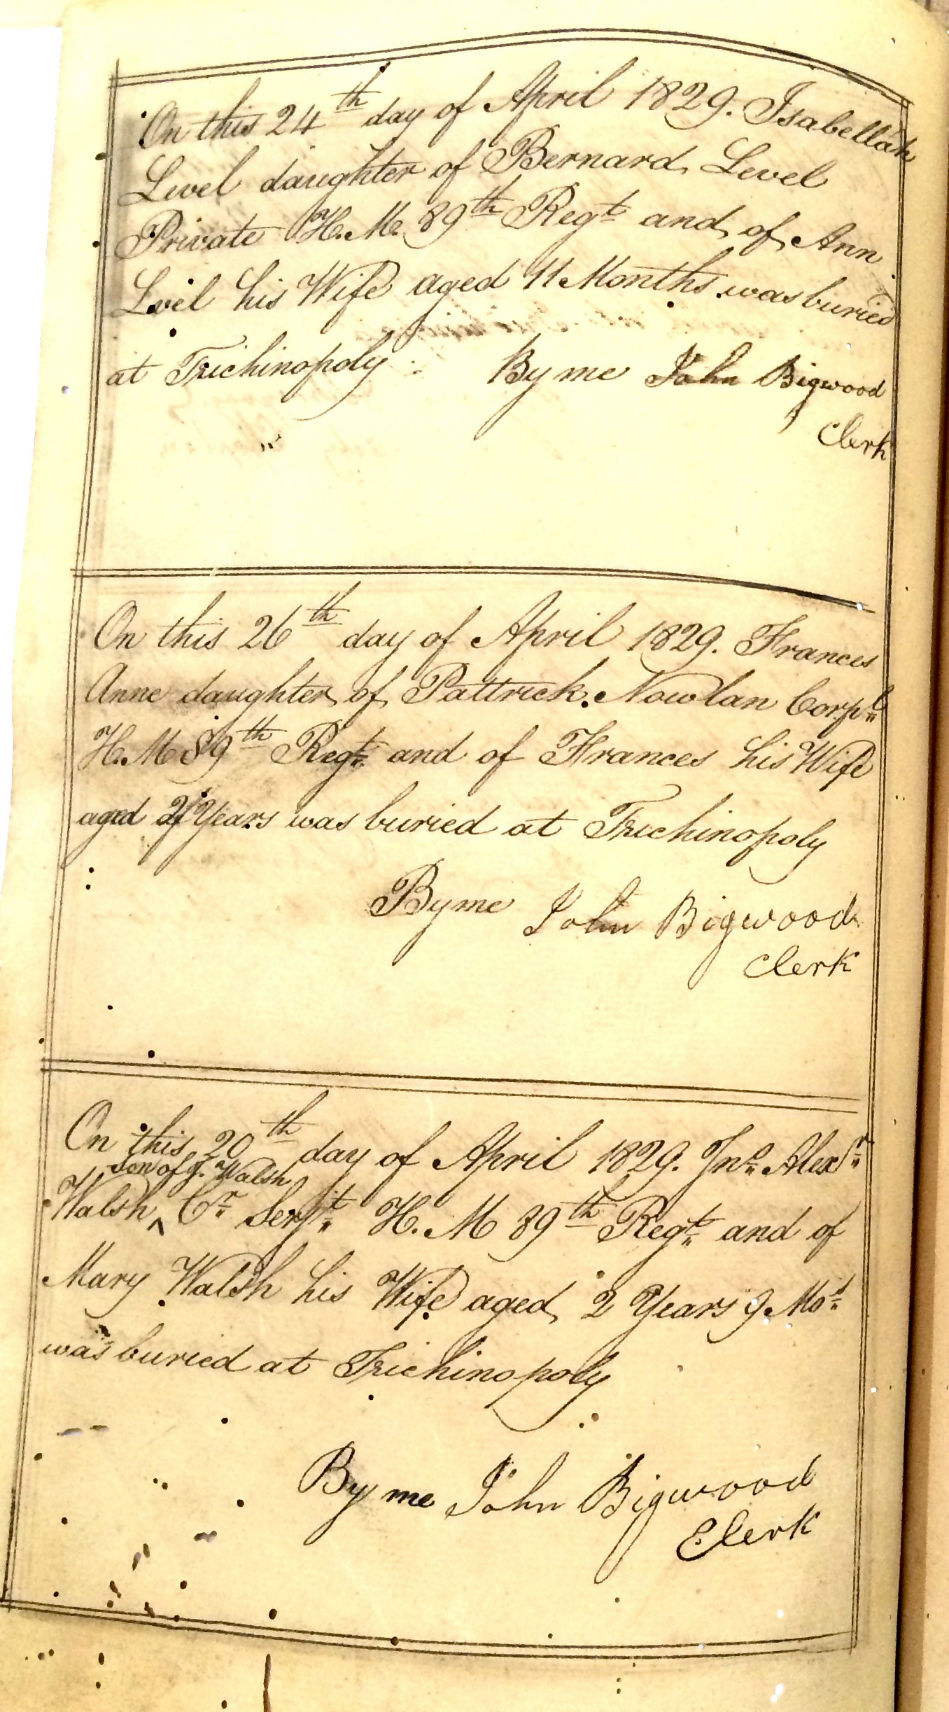 On this 24th day of April 1829. Isabellah
Level daughter of Bernard Level
Private H.M. 89th Regt and of Ann
Level his Wife aged 11 Months was buried
at Trichinopoly By me John Bigwood
Clerk
On this 26th day of April 1829. Frances
Anne daughter of Pattrick Nowlan Corpl
H.M 89th Regt and of Frances his Wife
aged 2 Years was buried at Trichinopoly
By me John Bigwood
Clerk
On this 20th day of April 1829. Jno Alexr
son of J. Walsh
Walsh Cr Serjt H.M 89th Regt and of
Mary Walsh his Wife aged 2 Years 9 Mos
was buried at Trichinopoly
By me John Bigwood
Clerk